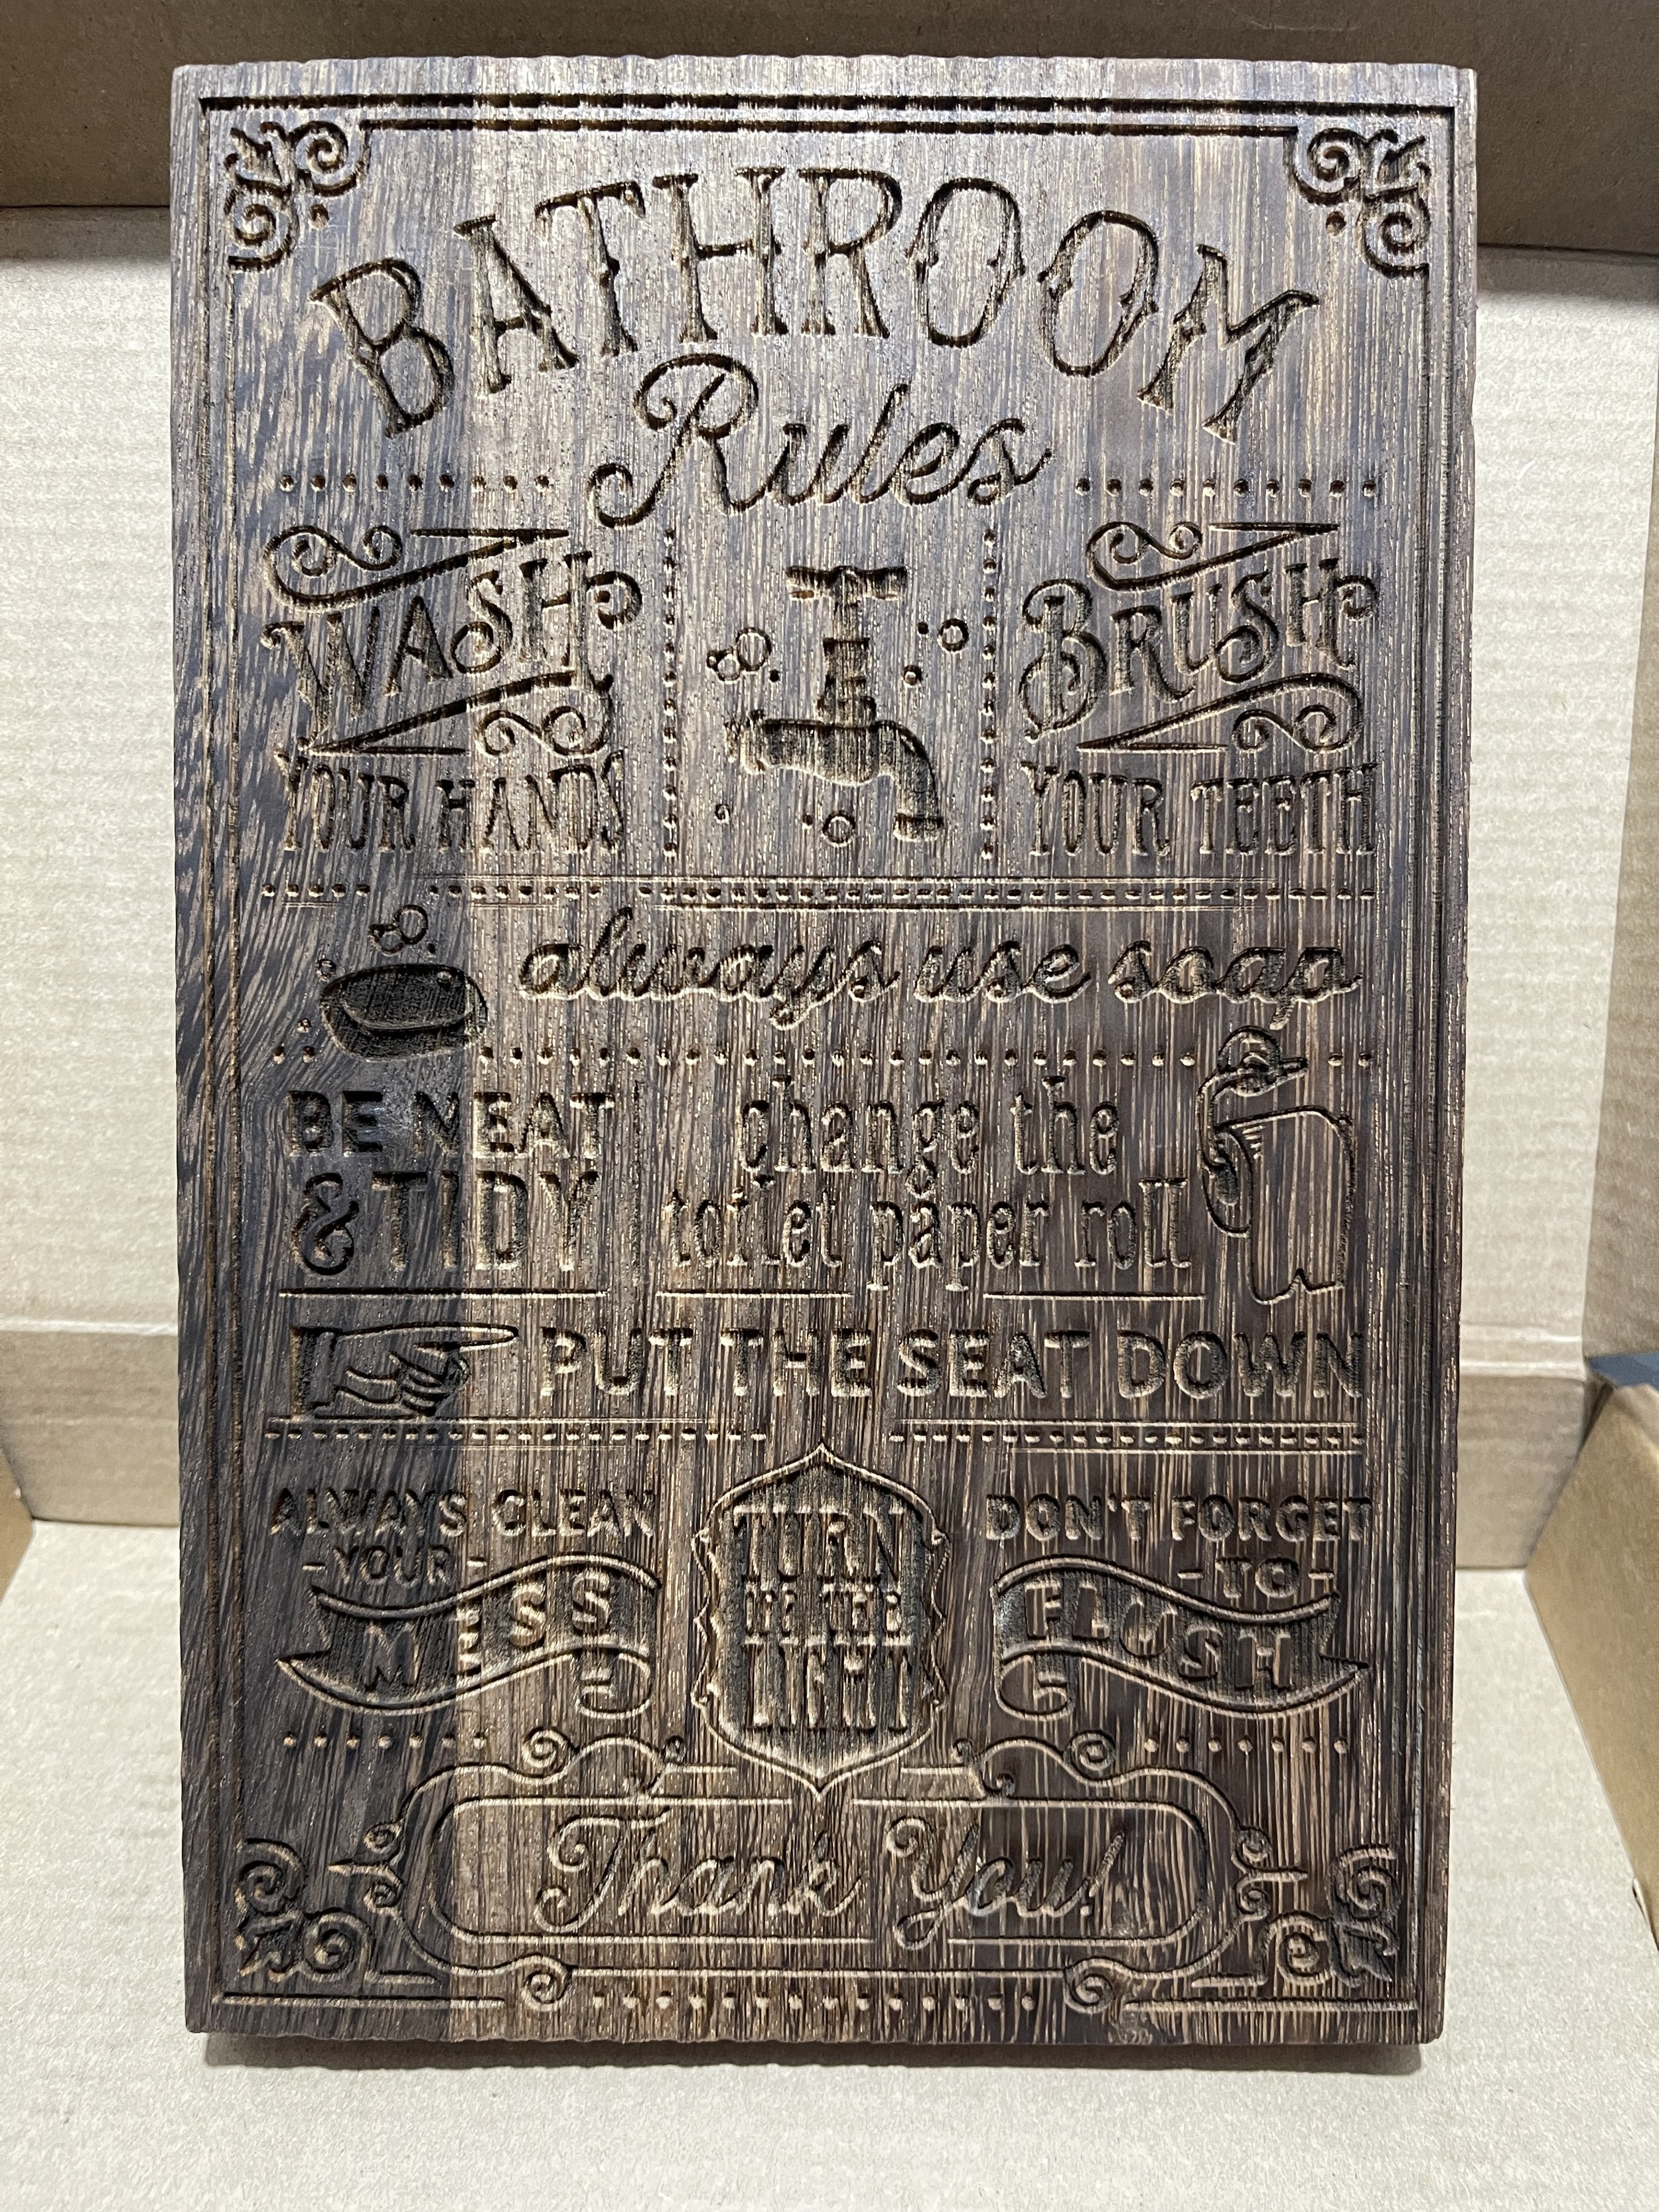 BATHROOM
Rules
WASH
YOUR HANDS
BRUSH
YOUR TEETH
always use soap
BE NEAT
& TIDY
change the
toilet paper roll
PUT THE SEAT DOWN
ALWAYS CLEAN
-YOUR-
MESS
TURN
OFF THE
LIGHT
DON'T FORGET
-TO-
FLUSH
Thank You!